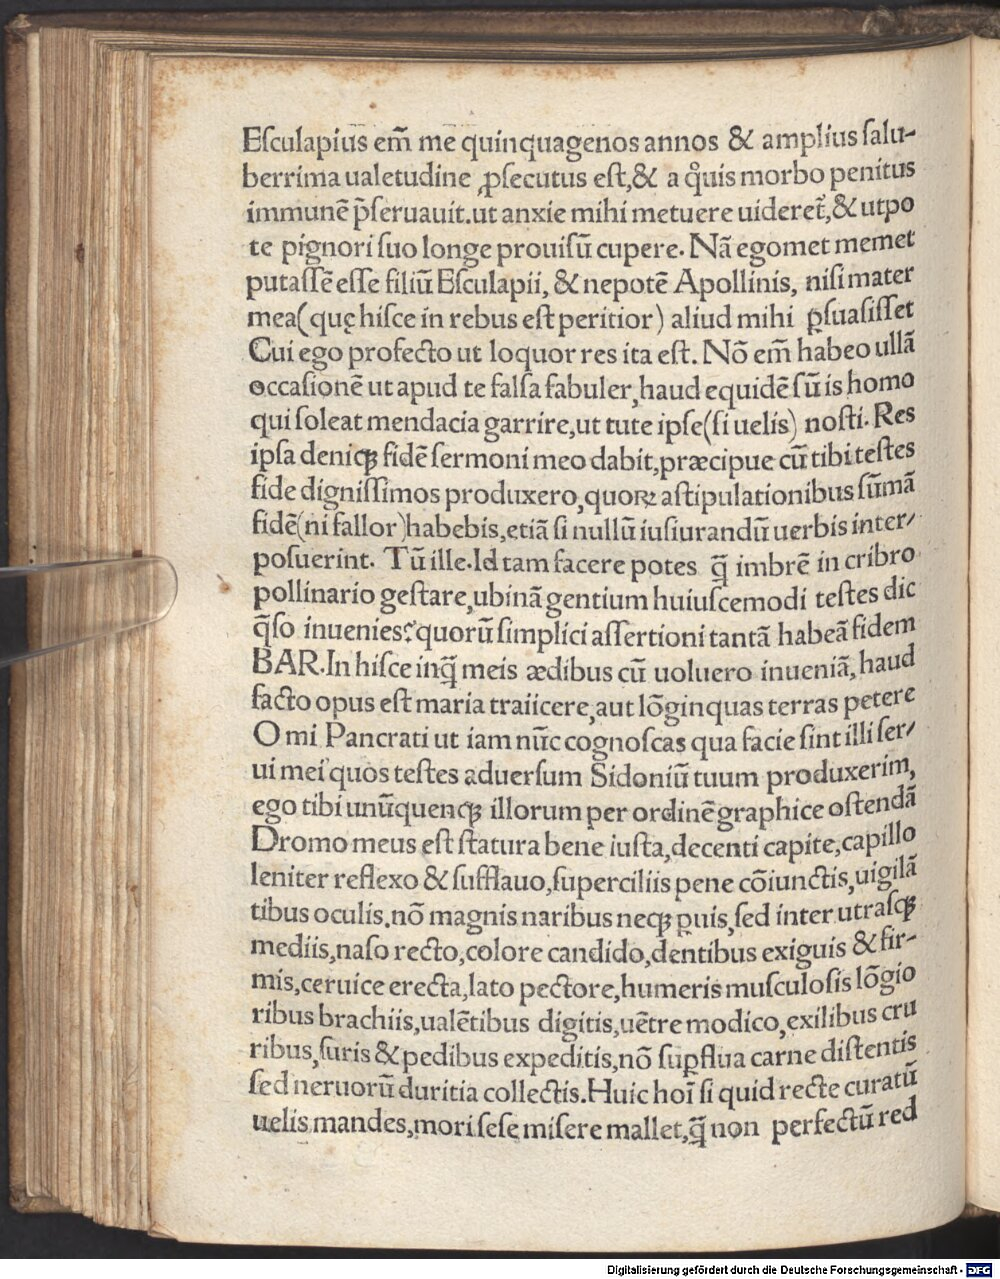 Eſculapius em̃ me quinquagenos annos & amplius ſalu-
berrima ualetudine ꝓſecutus eſt,& a qͦuis morbo penitus
immunē p̃ſeruauit.ut anxie mihi metuere uideret̃,& utpo
te pignori ſuo longe prouiſū cupere. Nā egomet memet
putaſſē eſſe filiū Eſculapii, & nepotē Apollinis, niſi mater
mea(quę hiſce in rebus eſt peritior) aliud mihi ꝑſuaſiſſet
Cui ego profecto ut loquor res ita eſt. Nō em̃ habeo ullā
occaſionē ut apud te falſa fabuler,haud equidē ſū is homo
qui ſoleat mendacia garrire,ut tute ipſe(ſi uelis) noſti. Res
ipſa deniqꝫ fidē ſermoni meo dabit,præcipue cū tibi teſtes
fide digniſſimos produxero,quoꝝ aſtipulationibus ſūmā
fidē(ni fallor)habebis,etiā ſi nullū iuſiurandū uerbis inter/
poſuerint. Tū ille.Id tam facere potes q̄ imbrē in cribro
pollinario geſtare,ubinā gentium huiuſcemodi teſtes dic
q̄ſo inuenies?quorū ſimplici aſſertioni tantā habeā fidem
BAR.In hiſce inq̄ meis ædibus cū uoluero inueniā,haud
facto opus eſt maria traiicere,aut lōginquas terras petere
O mi Pancrati ut iam nūc cognoſcas qua facie ſint illi ſer/
ui mei quos teſtes aduerſum Sidoniū tuum produxerim,
ego tibi unūquenqꝫ illorum per ordinē graphice oſtendā
Dromo meus eſt ſtatura bene iuſta,decenti capite,capillo
leniter reflexo & ſufflauo,ſuperciliis pene cōiunctis,uigilā
tibus oculis,nō magnis naribus neqꝫ ꝑuis,ſed inter utraſqꝫ
mediis,naſo recto,colore candido,dentibus exiguis & fir-
mis,ceruice erecta,lato pectore,humeris muſculoſis lōgio
ribus brachiis,ualētibus digitis,uētre modico,exilibus cru
ribus,ſuris & pedibus expeditis,nō ſuꝑflua carne diſtentis
ſed neruorū duritia collectis.Huic hoī ſi quid recte curatū
uelis mandes,mori ſeſe miſere mallet,q̄ non perfectū red
Digitalisierung gefördert durch die Deutsche Forschungsgemeinschaft - DFG